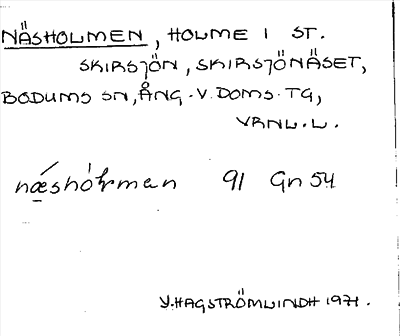 NÄSHOLMEN, HOLME I ST.
SKIRSJÖN, SKIRSJÖNÄSET,
BODUMS SN, ÅNG. V. DOMS. TG,
VRNL. L.
næshól̵man 91 Gn 54
Y. HAGSTRÖMLINDH 1971.